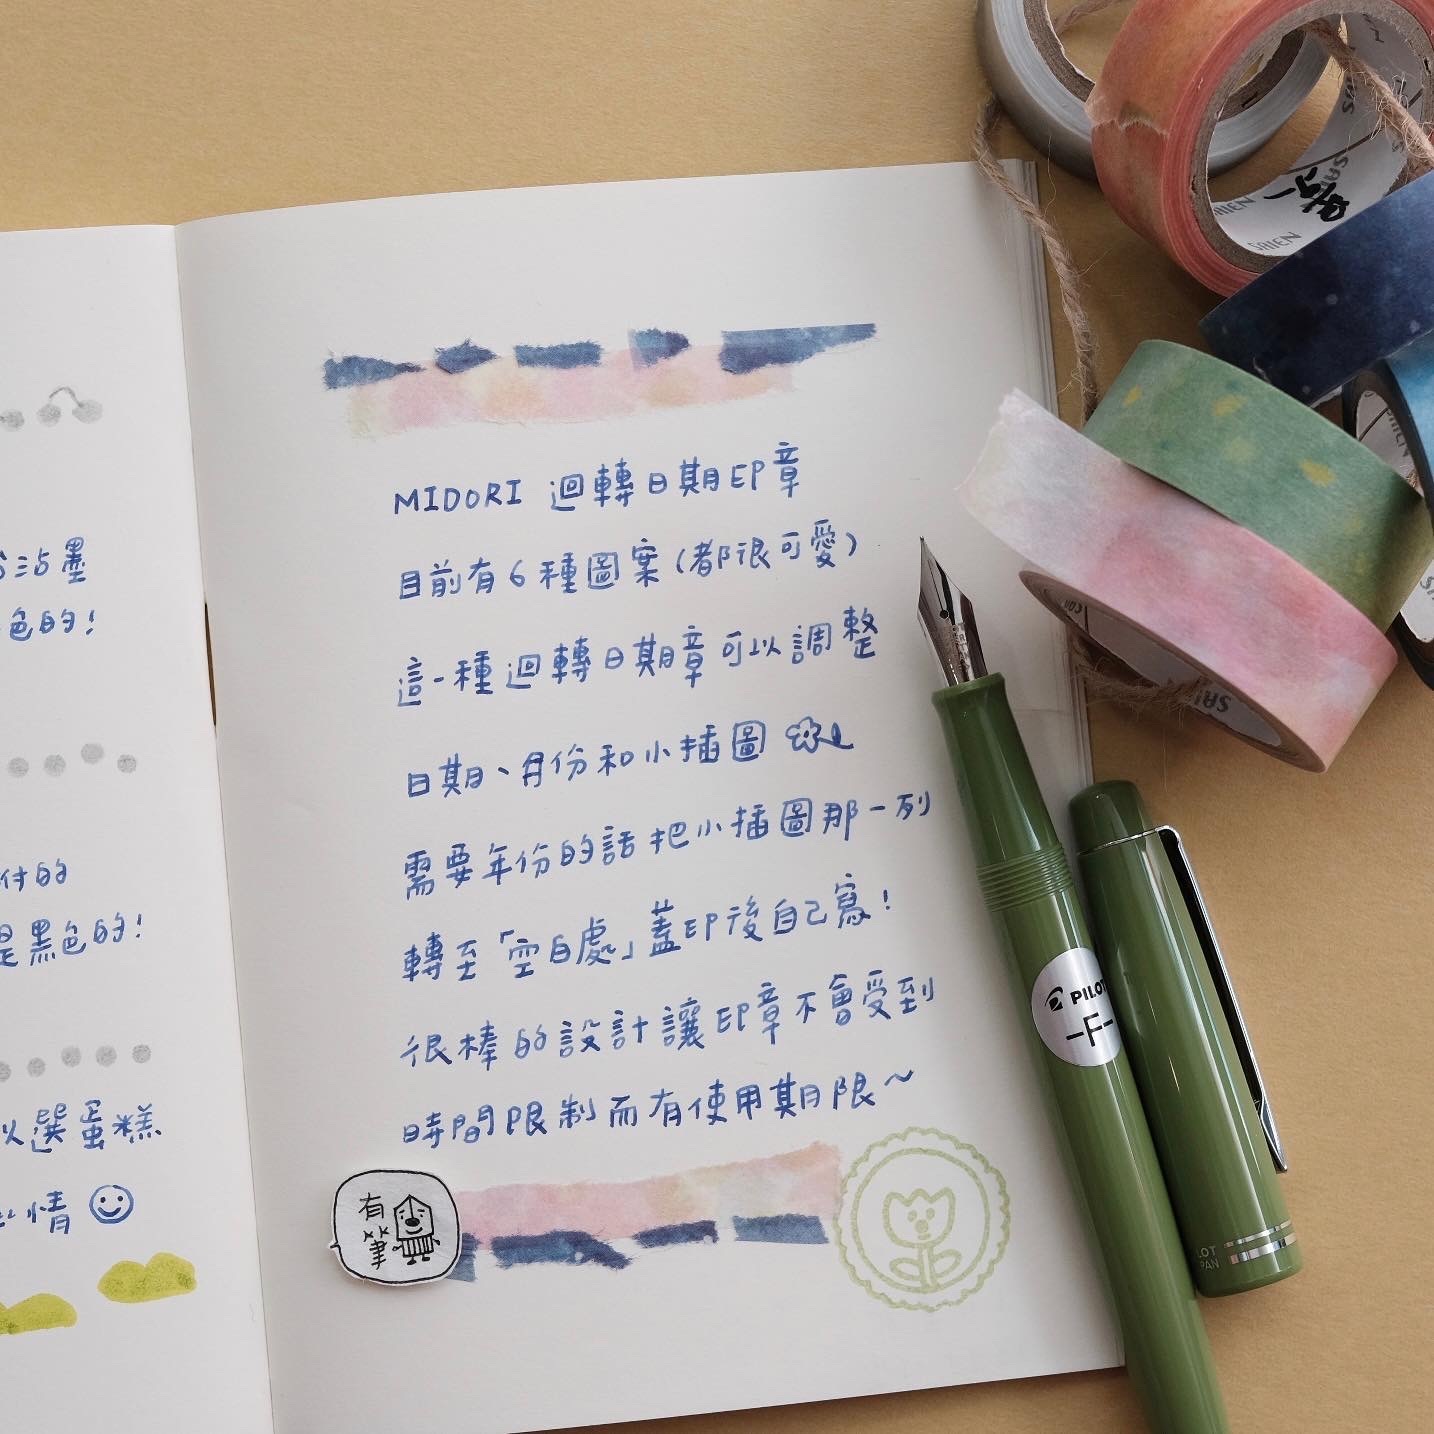 沾墨
色的!
付的
是黑色的!
以選蛋糕
情
MIDORI 迴轉日期印章
目前有6種圖案(都很可愛)
這一種迴轉日期章可以調整
日期、月份和小插圖
需要年份的話把小插圖那一列
轉至「空白處」蓋印後自己寫!
很棒的設計讓印章不會受到
時間限制而有使用期限~
有
筆
PILOT
-F-
SAIEN